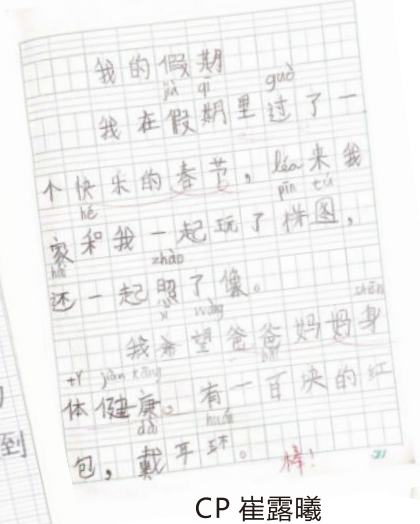 我的假期
jià qī guò
我在假期里过了一
个快乐的春节，来我
hé pīn tú
家和我一起玩了拼图，
hái zhào
还一起照了像。
xī wàng shēn
我希望爸爸妈妈身
tǐ jiàn kāng
体健康。有一百块的红
dài huán
包，戴耳环。 棒！
到
CP 崔露曦